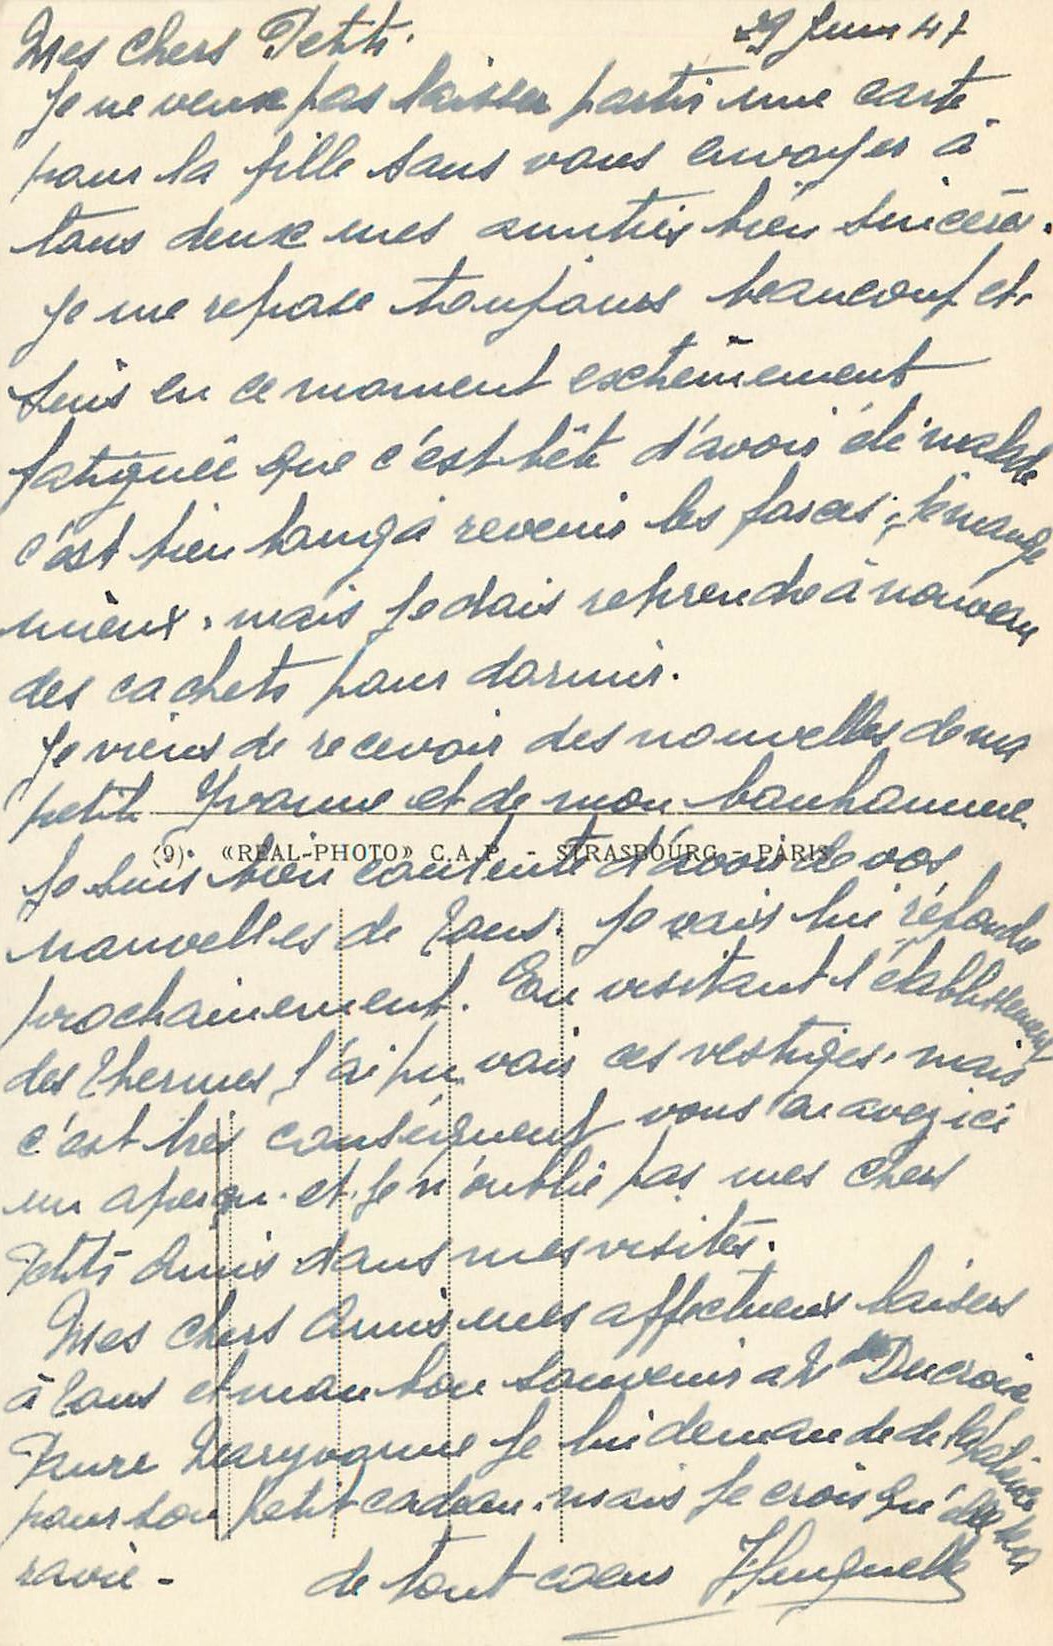 29 Juin 47
Mes chers Petits.
Je ne veux pas laisser partir une carte
pour la fille sans vous envoyer à
tous deux mes amitiés bien sincères.
Je me repose toujours beaucoup et
suis en ce moment extrêmement
fatiguée que c'est bête d'avoir été malade
c'est bien long à revenir les forces, je mange
mieux. mais je dois reprendre à nouveau
des cachets pour dormir.
Je viens de recevoir des nouvelles de ma
petite Yvonne et de mon bonhomme.
(9). «REAL-PHOTO» C.A.P. - STRASBOURG - PARIS
Je suis bien contente d'avoir de vos
nouvelles de tous. Je vais lui répondre
prochainement. En visitant l'établissement
des thermes, j'ai pu voir ces vestiges. mais
c'est très conséquent vous en avez ici
un aperçu. et je n'oublie pas mes chers
Petits Amis dans mes visites.
Mes chers Amis mes affectueux baisers
à tous et mon bon souvenir à Ducroix
Pour Maryvonne je lui demande de la patience
pour son petit cadeau. mais je crois qu'elle sera
ravie -
de tout coeur Huguette